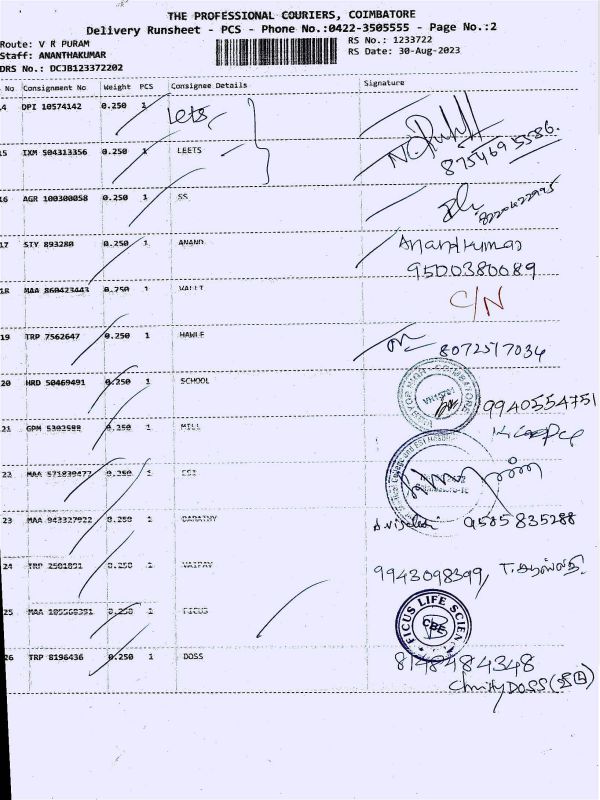 THE PROFESSIONAL COURIERS, COIMBATORE
Delivery Runsheet - PCS - Phone No.:0422-3505555 - Page No.:2
Route: V R PURAM
RS No.: 1233722
Staff: ANANTHAKUMAR
RS Date: 30-Aug-2023
DRS No.: DCJB123372202
No Consignment No Weight PCS Consignee Details Signature
14 DPI 10574142 0.250 1 Lets
15 IXM 504313356 0.250 1 LEETS
875469 5586.
16 AGR 100300058 0.250 1 SS
17 STY 893280 0.250 1 ANAND Anandkumar
9500380089
18 MAA 860423443 0.250 1 VALLI C/N
19 TRP 7562647 0.250 1 HAWLE 8072517034
20 HRD 50469491 0.250 1 SCHOOL 9940554751
21 GPM 5302588 0.250 1 MILL
22 MAA 571839477 0.250 1 ESI
23 MAA 943327922 0.250 1 9585 835288
24 TRP 2501891 0.250 1 9943098399,
25 0.250 1 FICUS FICUS LIFE SCIEN CBE
26 TRP 8196436 0.250 1 DOSS 8148484348
Christy DOSS